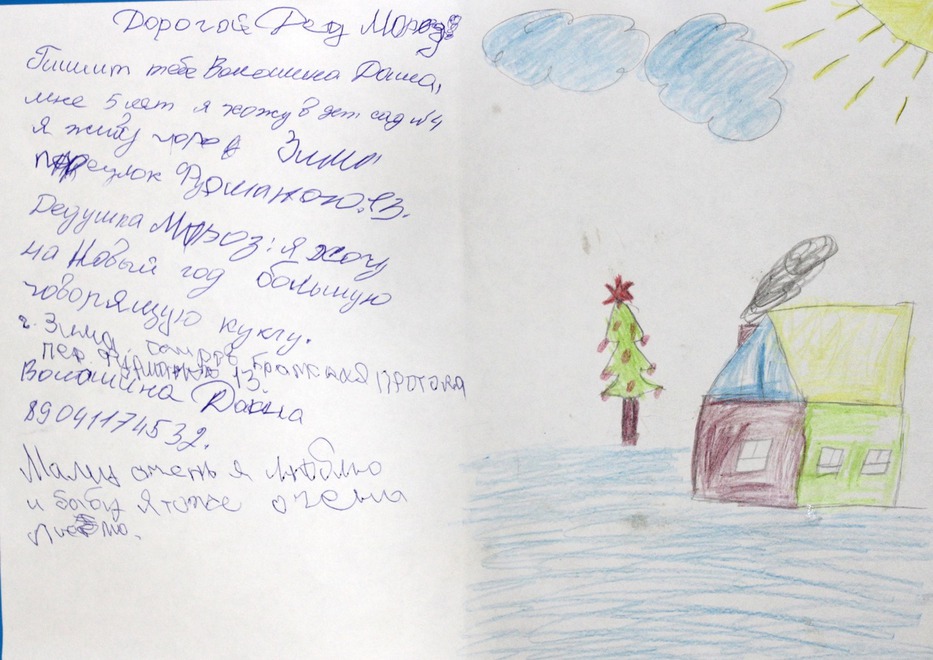 Дорогой Дед Мороз!
Пишит тебе Волошина Даша,
мне 5 лят я хожу в дет сад №4
я живу город Зима
переулок 13.
Дедушка Мороз: я хочу
на Новый год большую
говорящую куклу.
г. Зима, протока
пер. 13.
Волошина Даша
89041174532.
Маму очень я люблю
и бабу я тоже очень
люблю.